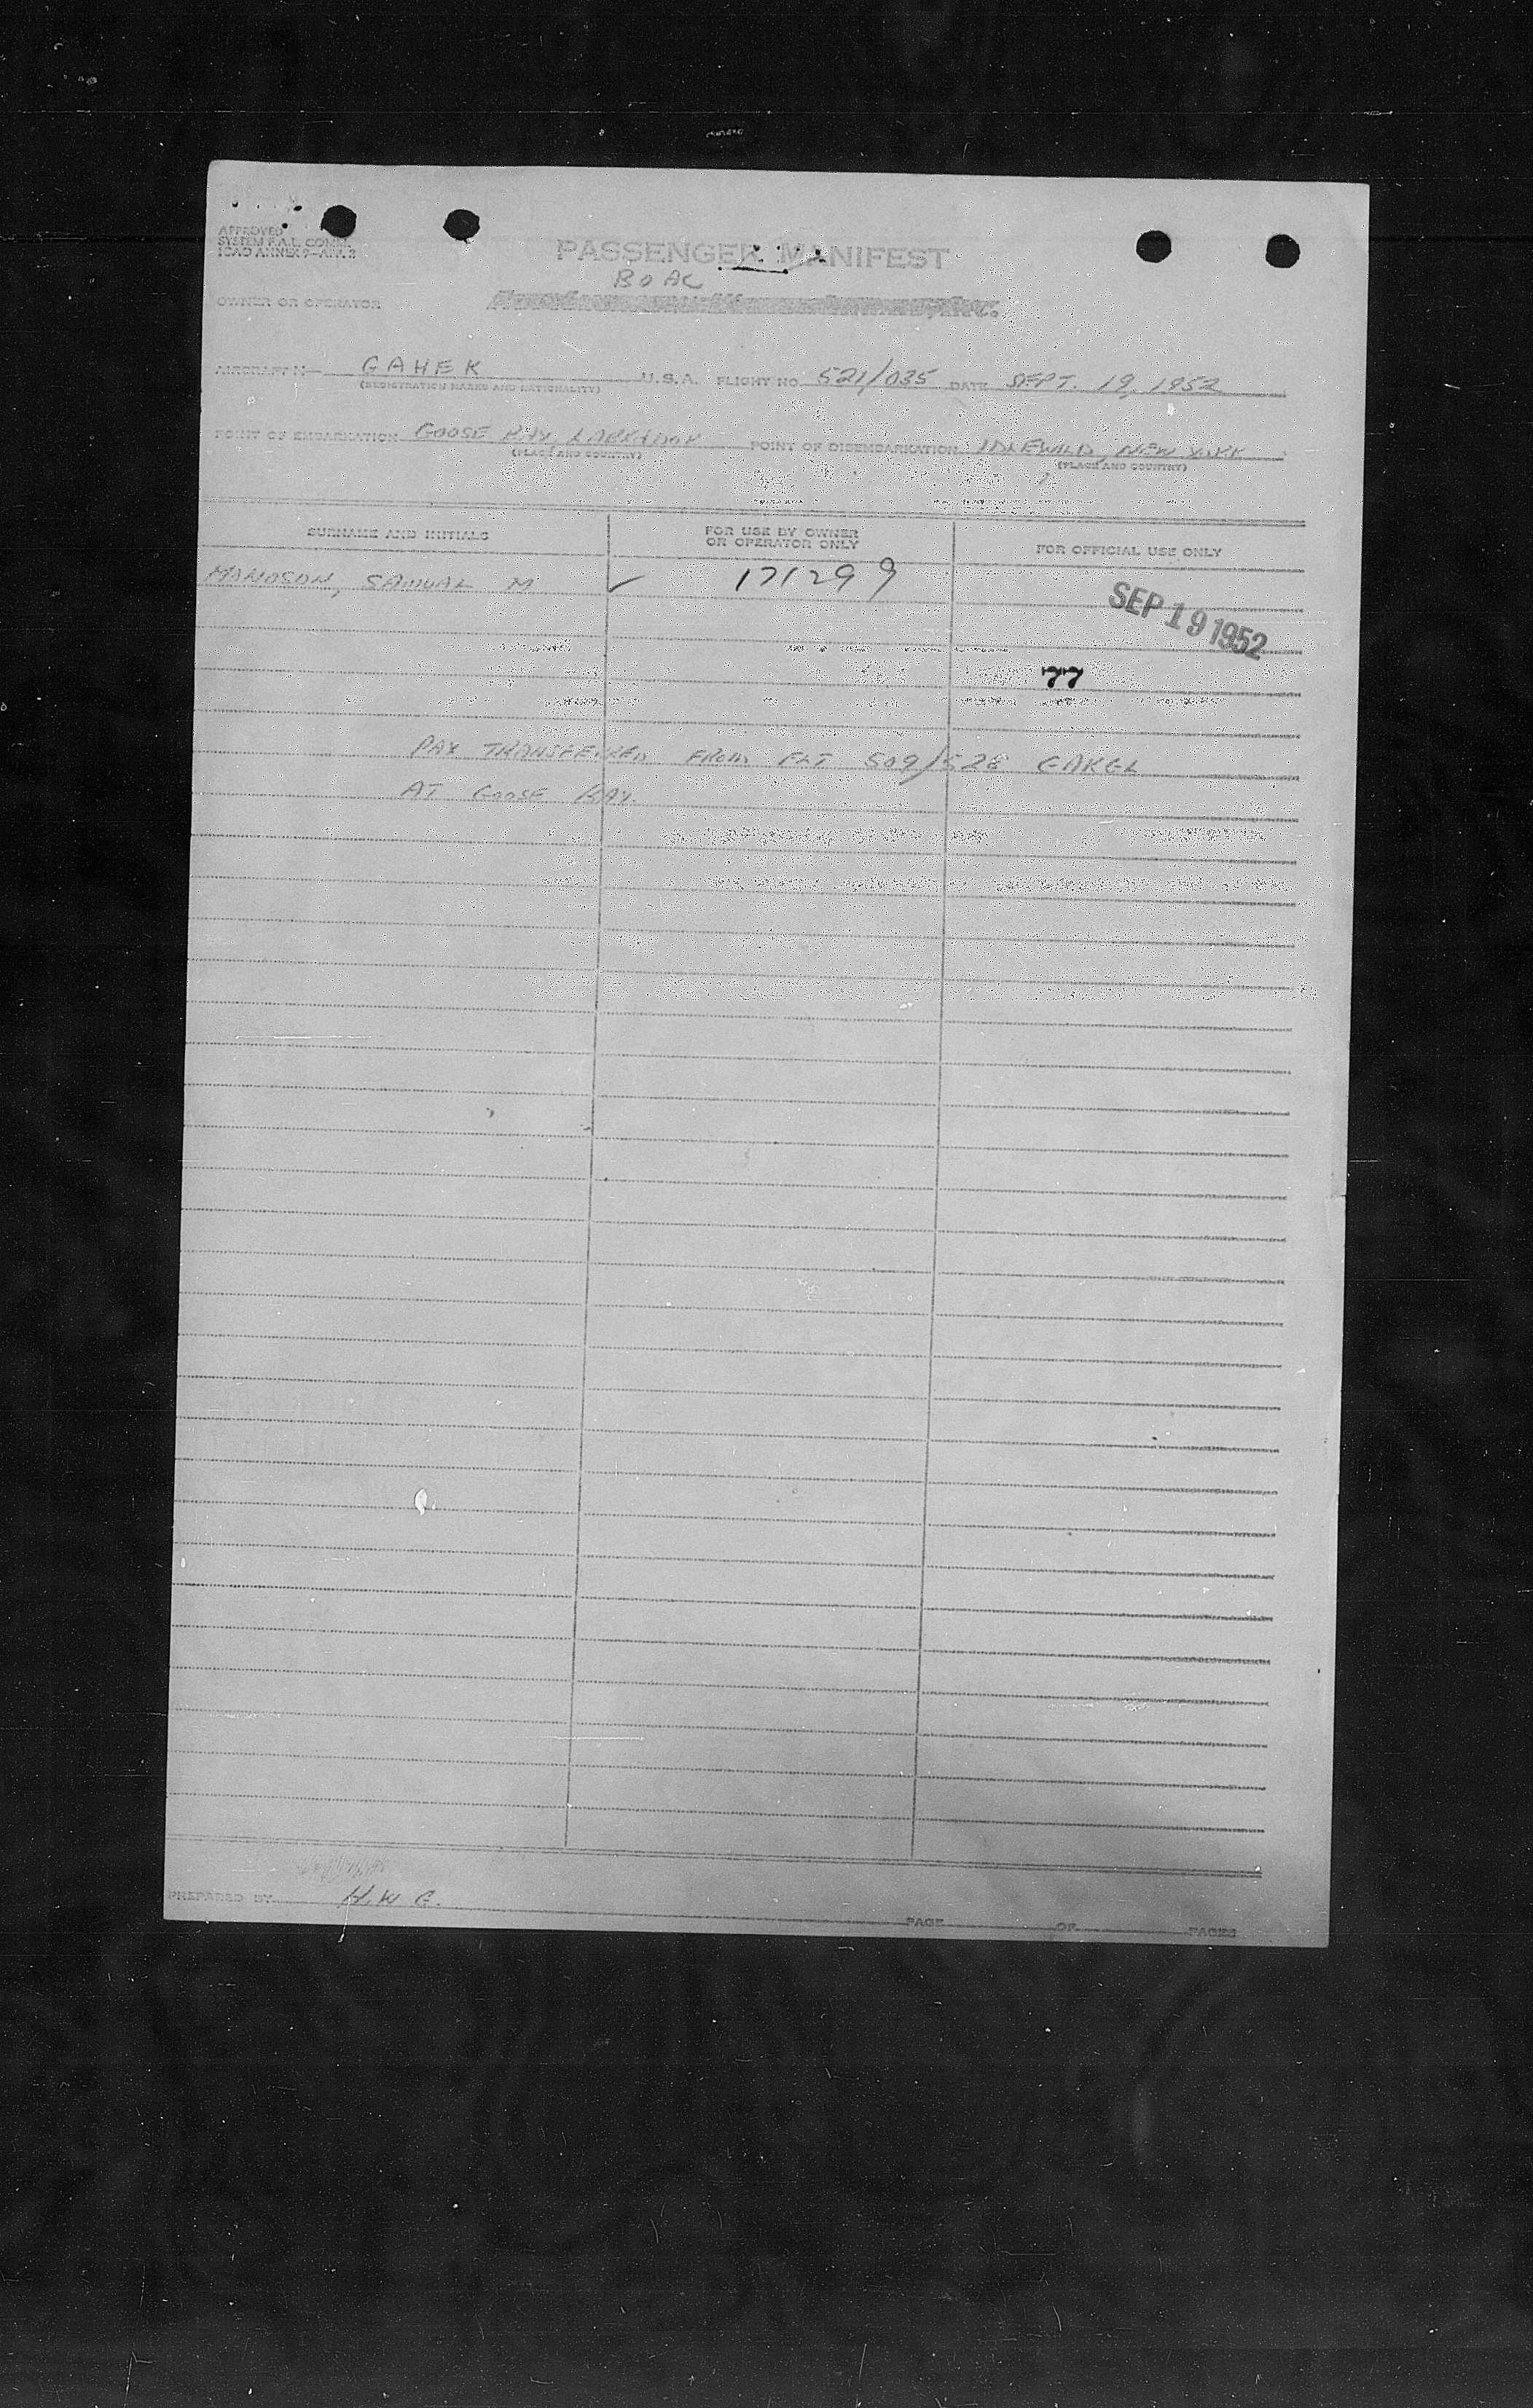 APPROVED
SYSTEM F.A.L. COMM.
ICAO ANNEX 9—APP. 3
PASSENGER MANIFEST
BOAC
OWNER OR OPERATOR
AIRCRAFT N— GAHEK U.S.A. FLIGHT NO. 521/035 DATE SEPT. 19, 1952
(REGISTRATION MARKS AND NATIONALITY)
POINT OF EMBARKATION GOOSE BAY, LABRADOR POINT OF DISEMBARKATION IDLEWILD, NEW YORK
(PLACE AND COUNTRY) (PLACE AND COUNTRY)
SURNAME AND INITIALS FOR USE BY OWNER OR OPERATOR ONLY FOR OFFICIAL USE ONLY
MANOSON, SAMUAL M ✓ 171299
SEP 19 1952
77
PAX TRANSFERRED FROM FLT 509/528 GAKGL
AT GOOSE BAY.
PREPARED BY H.W G.
PAGE OF PAGES